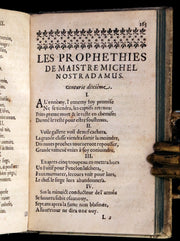 163
LES PROPHETIES
DE MAISTRE MICHEL
NOSTRADAMUS.
Centurie dixiéme.
I.
A L'ennemy, l'ennemy foy promise
Ne se tiendra, les captifs retenus:
Prins preme mort & le reste en chemise
Damné le reste pour estre soustenus.
II.
Voile gallere voil de nef cachera,
La grande classe viendra sortir la moindre,
Dix naves proches tourneront repousser,
Grande vaincue unies à soy joindre.
III.
En apres cinq troupeau ne mettra hors
Un fuitif pour Penelon laschera,
Faux murmurer, secours venir pour lors,
Le chef, le siege lors abandonnera.
IV.
Sur la minuict conducteur de l'armée
Se sauvera subit esvanouy,
Sept ans apres la fame non blasmée,
A son retour ne dira onc ouy.
L 2